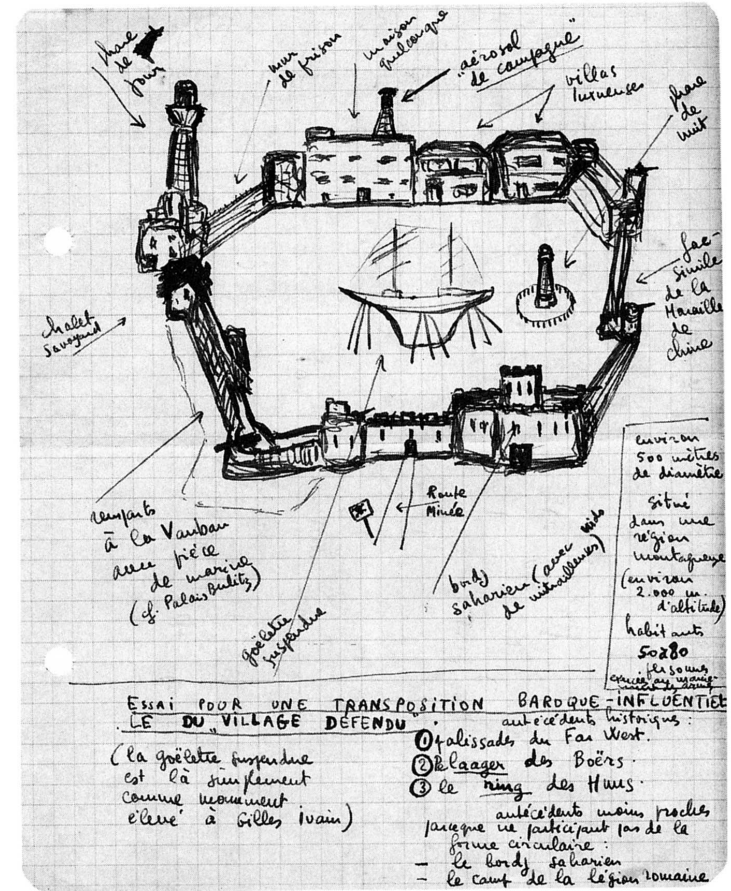 phare
de
jour
mur
de prison
maison
quelconque
"aérosol
de campagne"
villas
luxueuses
phare
de
nuit
fac-
simile
de la
Muraille
de
chine
chalet
savoyard
remparts
à la Vauban
avec pièce
de marine
(cf. Palais
goëlette
suspendue
Route
Minée
bordj
saharien (avec nids
de mitrailleuses)
environ
500 mètres
de diamètre
situé
dans une
région
montagneuse
(environ
2.000 m.
d'altitude)
habitants
50 à 80
personnes
ESSAI POUR UNE TRANSPOSITION BAROQUE-INFLUENTIEL
LE DU "VILLAGE DÉFENDU".
(la goëlette suspendue
est là simplement
comme monument
élevé à Gilles Ivain)
antécédents historiques :
① palissades du Far West.
② le laager des Boërs.
③ le ring des Huns.
antécédents moins proches
parceque ne participant pas de la
forme circulaire :
– le bordj saharien
– le camp de la légion romaine